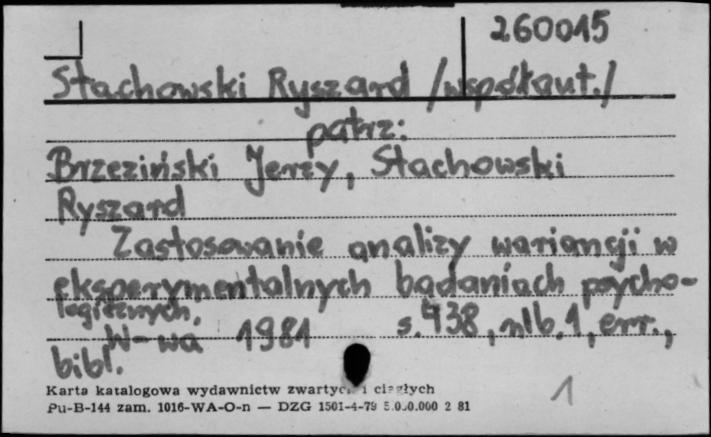 260015
Stachowski Ryszard /współaut./
patrz:
Brzeziński Jerzy, Stachowski
Ryszard
Zastosowanie analizy wariancji w
eksperymentalnych badaniach psycho-
logicznych.
W-wa 1981 s. 438, nlb. 1, err.,
bibl.
Karta katalogowa wydawnictw zwartych i ciągłych
Pu-B-144 zam. 1016-WA-O-n — DZG 1501-4-79 5.000.000 2 81
1